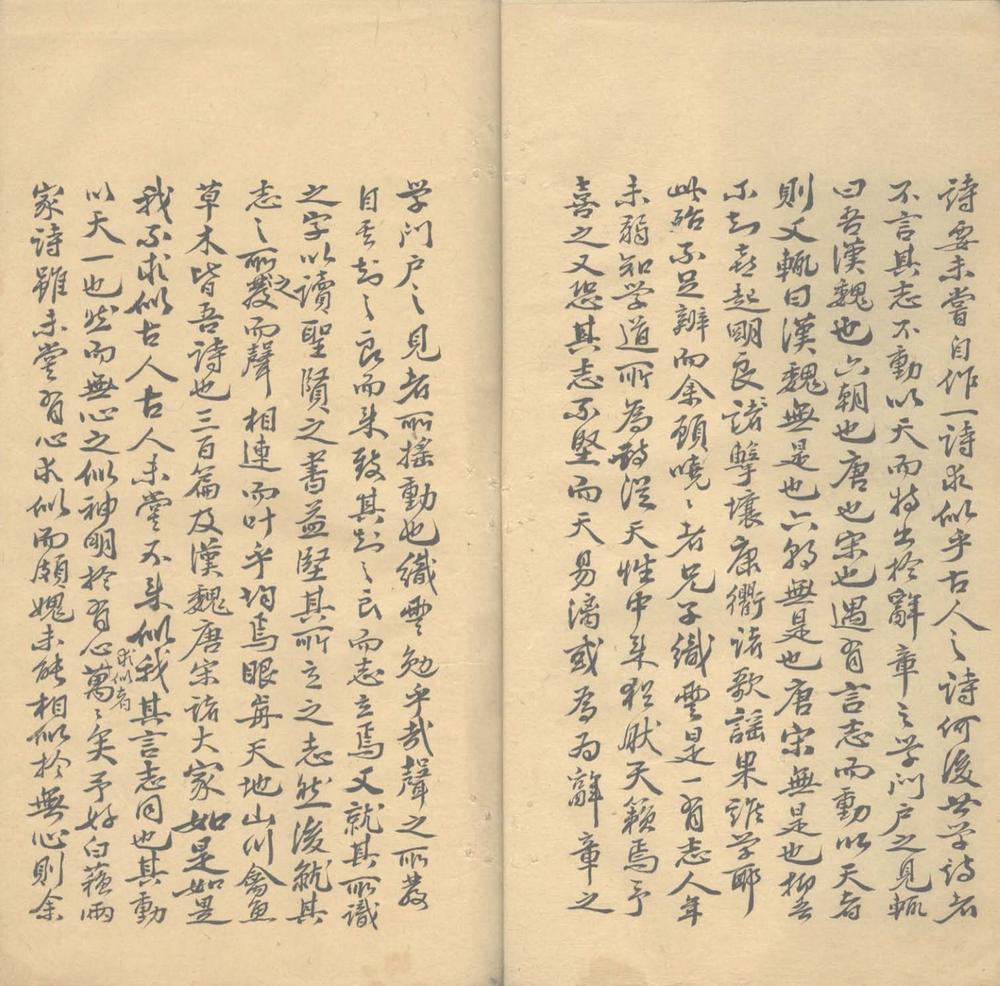 詩要未嘗自作一詩求似乎古人之詩何後世学詩者
不言其志不動以天而特出於辭章之学門戶之見輒
曰吾漢魏也六朝也唐也宋也遇有言志而動以天者
則又輒曰漢魏無是也六朝無是也唐宋無是也抑吾
不知喜起明良諸擊壤康衢諸歌謠果誰学耶
此殆不足辨而余顧嘵〻者兄子織雲是一有志人年
未弱知学道所為詩從天性中来猶肰天籟焉予
喜之又恐其志不堅而天易漓或為为辭章之
学门户之見者所搖動也織雲勉乎哉聲之所發
自吾知之良而来致其知之良而志立焉又就其所識
之字以讀聖賢之書益堅其所立之志然後就其
志之所之發而聲相連而叶乎均焉眼前天地山川禽魚
草木皆吾詩也三百篇及漢魏唐宋諸大家如是如是
我不求似古人古人未嘗不来似我其言志同也其動
以天一也然而無心之似神明於有心求似者萬〻矣予好白蘓兩
家詩雖未嘗有心求似而頗媿未能相似於無心則余